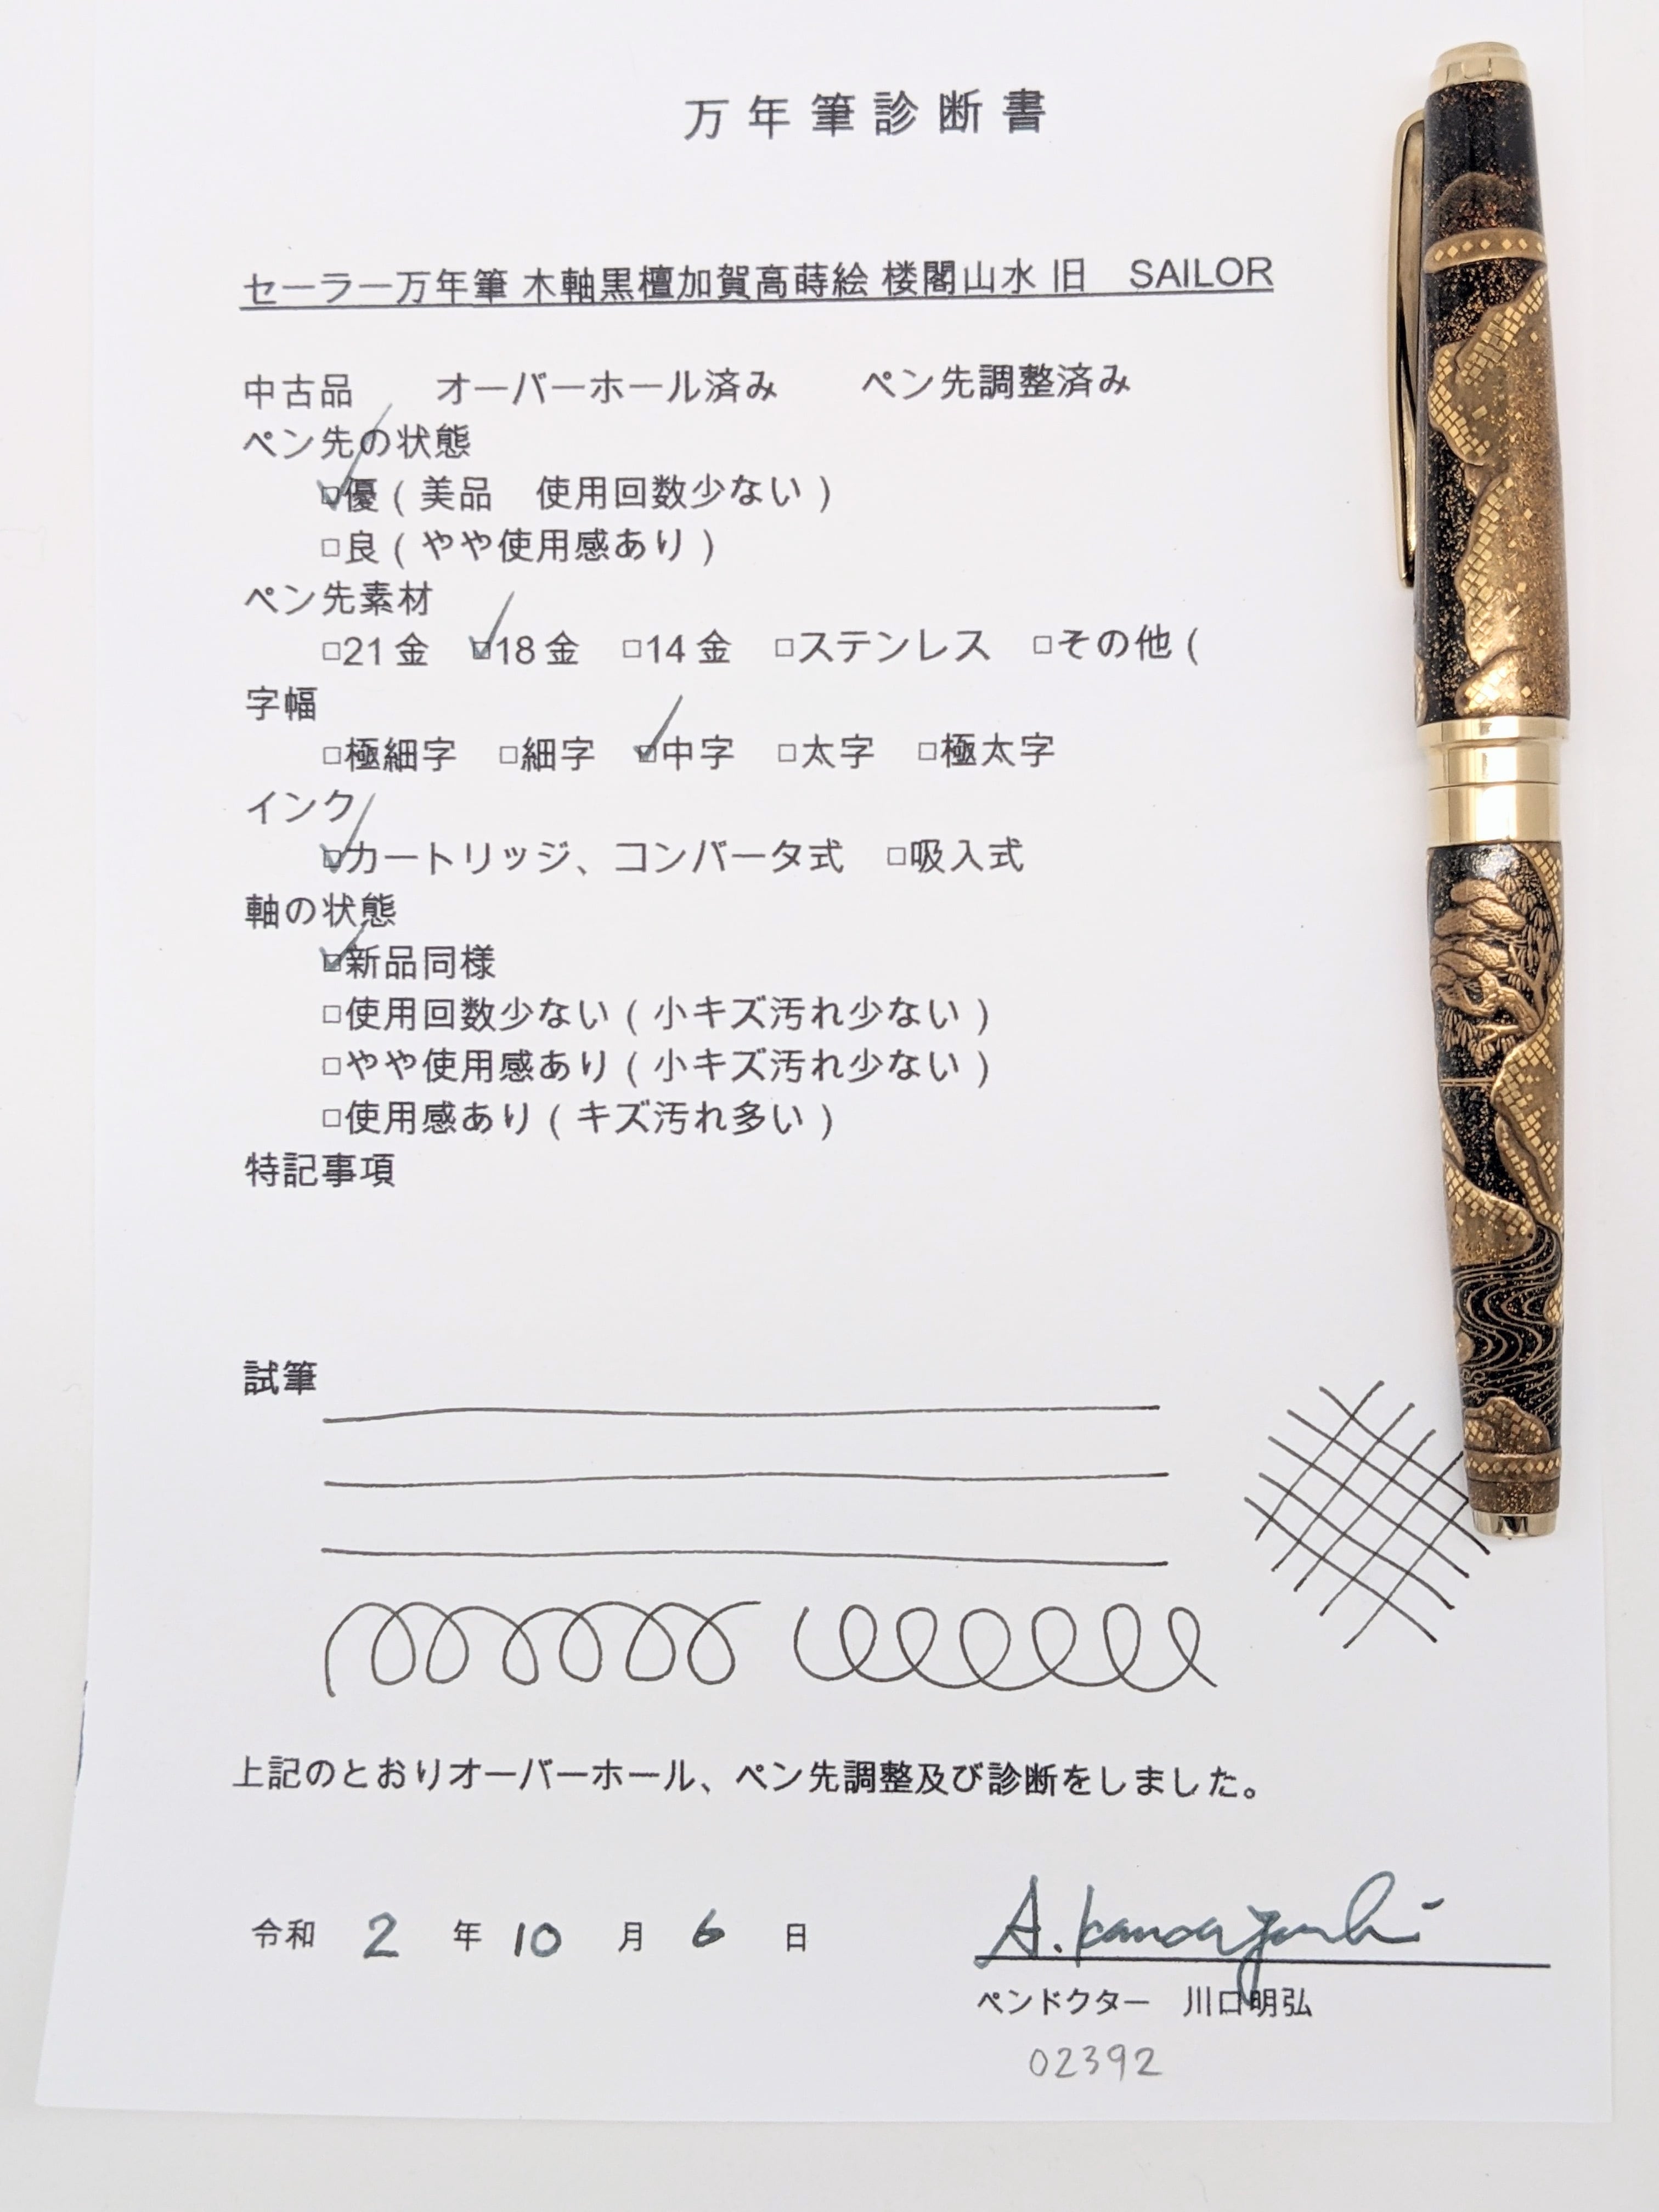 万年筆診断書
セーラー万年筆 木軸黒檀加賀高蒔絵 楼閣山水 旧　SAILOR
中古品　　オーバーホール済み　　ペン先調整済み
ペン先の状態
☑優（美品　使用回数少ない）
□良（やや使用感あり）
ペン先素材
□21金　☑18金　□14金　□ステンレス　□その他（
字幅
□極細字　□細字　☑中字　□太字　□極太字
インク
☑カートリッジ、コンバータ式　□吸入式
軸の状態
☑新品同様
□使用回数少ない（小キズ汚れ少ない）
□やや使用感あり（小キズ汚れ少ない）
□使用感あり（キズ汚れ多い）
特記事項
試筆
上記のとおりオーバーホール、ペン先調整及び診断をしました。
令和 2 年 10 月 6 日
ペンドクター　川口明弘
02392